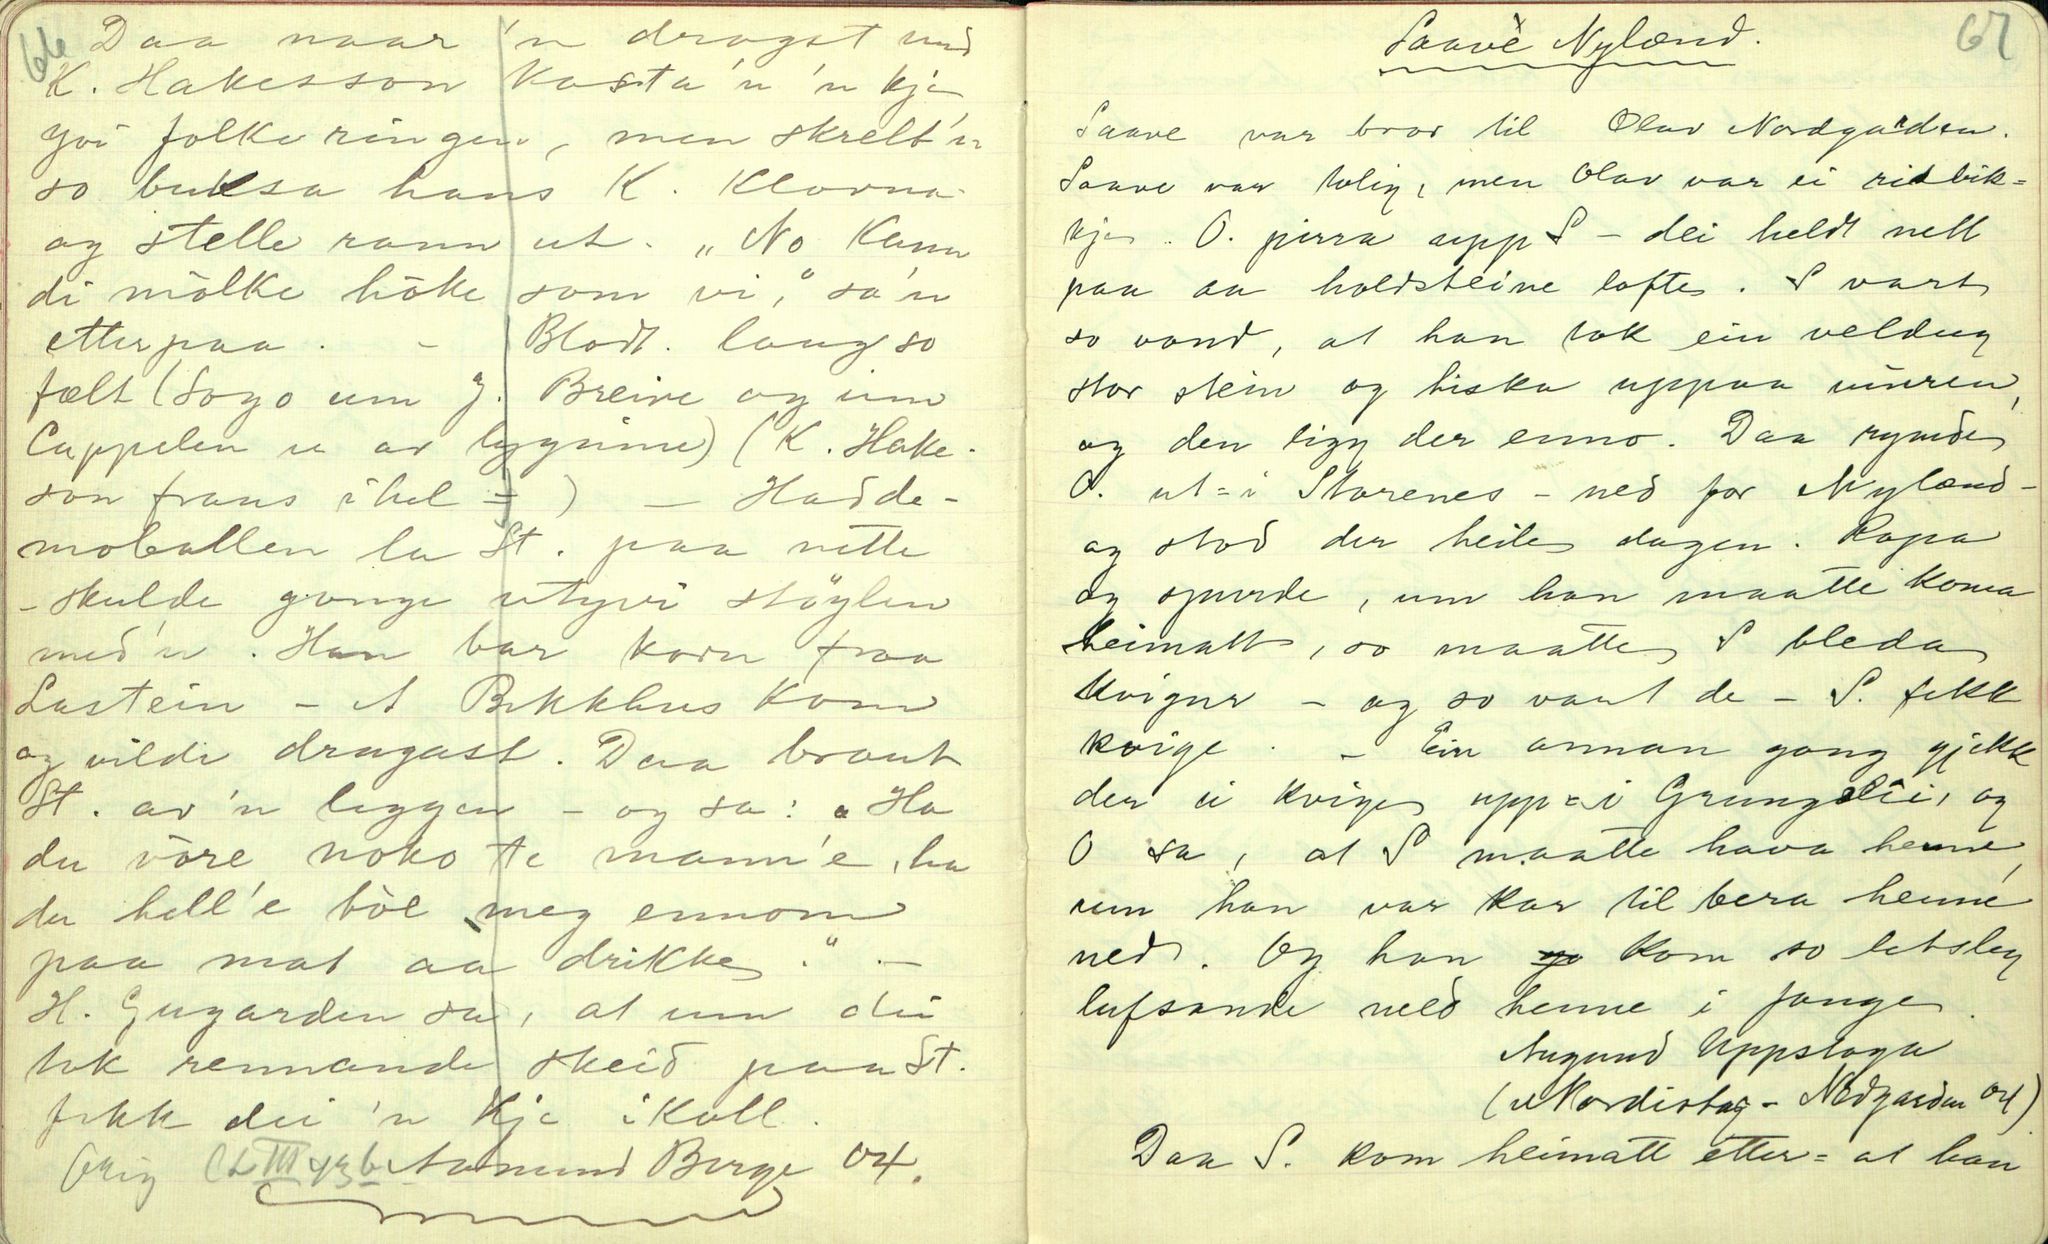 66
Daa naar 'n drogst med
K. Hakesson kasta 'n 'n kje
yvi folkeringen, men skrelt'n
so buksa hans K. klovna
og stelle rann ut. „No kann
di mölke höke som vi", sa'n
etterpaa. - Blodt. laug so
fælt (Sogo um J. Breive og um
Cappelen er av lygnine) (K. Hake-
son fraus ihel =) — Hadde-
moballen la St. paa nette
- skulde gange utyvi stöylen
med'n. Han bar korn fraa
Lastein - et Bekkhus kom
og vilde dragast. Daa braut
St. av'n leggen - og sa: „Ha
du vöre noko te mann'e, ha
du hell'e bòe meg ennom
paa mat aa drikke". —
H. Gugarden sa, at um dei
tok rennande skeid paa St.
fekk dei 'n kje ikoll.
Orig LIII 43b Aamund Berge 04.
67
Saave Nylænd.
Saave var bror til Olav Nordgarden.
Saave var tolig, men Olav var ei
kje. O. pirra upp S - dei heldt nett
paa aa holdsteine lofte. S vart
so vond, at han tok ein veldug
stor stein og hiska uppaa muren,
og den ligg der enno. Daa rymde
O. ut=i Storenes - ned for Nylænd -
og stod der heile dagen. Ropa
og spurde, um han maatte koma
heimatt, so maatte S bleda
kvigur - og so vart de - S. fekk
kvige. - Ein annan gong gjekk
der ei kvige upp=i Grungelii, og
O sa, at S maatte hava henne,
um han var kar til bera henne
ned. Og han kom so letsleg
lufsande ned henne i fange.
Augund Uppstoga
(Nordistog - Nedgarden 04)
Daa S. kom heimatt etter=at han